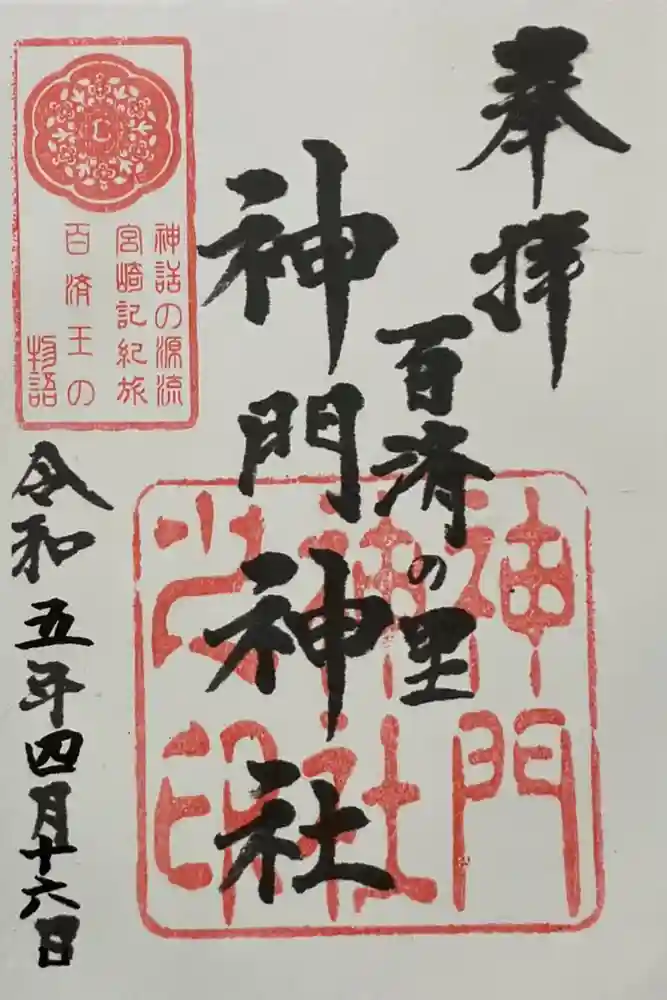 奉拝
百済の里
神門神社
神門
神社
之印
神話の源流
宮崎記紀旅
百済王の
物語
令和五年四月十六日